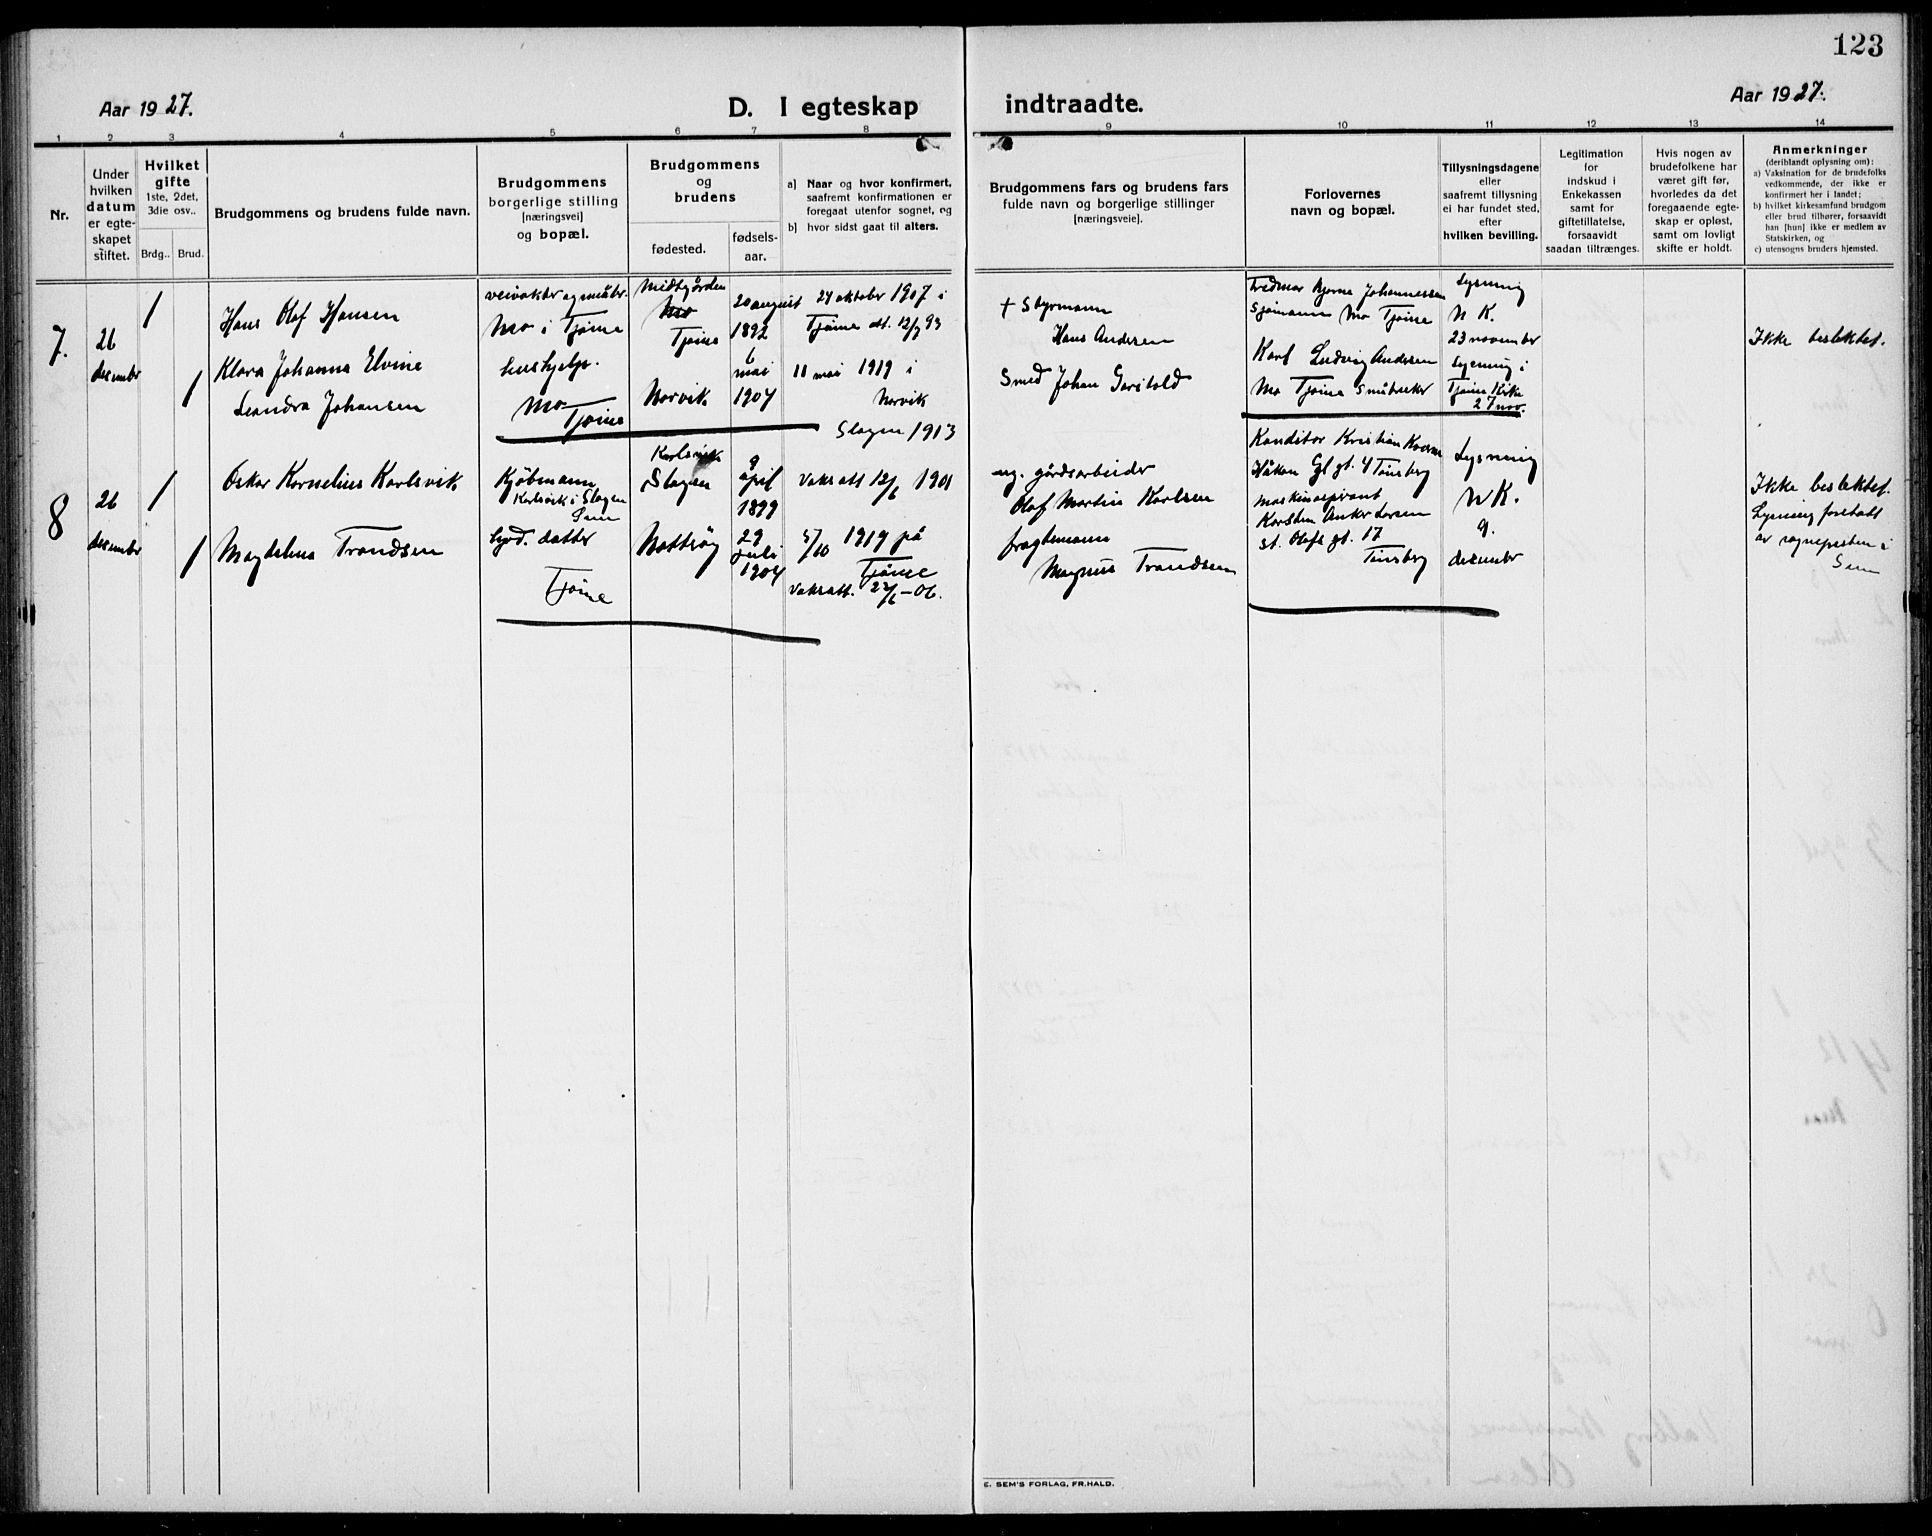 123
Aar 1927.
D. I egteskap indtraadte.
Aar 1927.
1 2 3 4 5 6 7 8 9 10 11 12 13 14
Nr.
Under
hvilken
datum
er egte-
skapet
stiftet.
Hvilket
gifte
1ste, 2det,
3die osv..
Brdg.. Brud.
Brudgommens og brudens fulde navn.
Brudgommens
borgerlige stilling
[næringsvei]
og bopæl.
Brudgommens
og
brudens
fødested.
fødsels-
aar.
a] Naar og hvor konfirmert,
saafremt konfirmationen er
foregaat utenfor sognet, og
b] hvor sidst gaat til alters.
Brudgommens fars og brudens fars
fulde navn og borgerlige stillinger
[næringsveie].
Forlovernes
navn og bopæl.
Tillysningsdagene
eller
saafremt tillysning
ei har fundet sted,
efter
hvilken bevilling.
Legitimation
for
indskud i
Enkekassen
samt for
giftetillatelse,
forsaavidt
saadan tiltrænges.
Hvis nogen av
brudefolkene har
været gift før,
hvorledes da det
foregaaende egte-
skap er opløst,
samt om lovligt
skifte er holdt.
Anmerkninger
(deriblandt oplysning om):
a) Vaksination for de brudefolks
vedkommende, der ikke er
konfirmert her i landet;
b) hvilket kirkesamfund brudgom
eller brud tilhører, forsaavidt
han [hun] ikke er medlem av
Statskirken, og
c) utensogns bruders hjemsted.
7.
26
desember
1
1
Hans Olaf Hansen
Klara Johanna Elvine
Leandra Johansen
veivokter og småbr.
Mo i Tjøme
hushjelp.
Mo
Tjøme
Midtgården
Mo
Tjøme
Norvik
20 august
1892
6
mai
1904
24 oktober 1907 i
Tjøme att. 12/9 93
11 mai 1919 i
Norvik
+ Styrmann
Hans Andersen
Smed Johan
Fridmar Bjerne Johannessen
Sjømann Mo Tjøme
Karl Ludvig Andersen
Mo Tjøme Småbruker
Lysning
N K.
23 november
Lysning i
Tjøme Kirke
27 nov.
Ikke beslektet.
8
26
desember
1
1
Oskar Kornelius Karlsvik
Magdalena Trondsen
Kjøbmann
Karlsvik i Slagen
Sem
hjv. datter
Tjøme
Karlsvik
Slagen
Nøtterøy
9
april
1899
29
juli
1904
Slagen 1913
Vaks att 12/6 1901
5/10 1919 på
Tjøme
Vaksatt. 27/6 - 06.
ug. gårdsarbeider
Olaf Martin Karlsen
fragtemann
Magnus Trondsen
Konditor Kristian
Håkon Gl gt. 4 Tønsberg
maskinaspirant
Karsten Anker Larsen
St. Olafs gt. 17
Tønsberg
Lysning
N K.
9.
desember
Ikke beslektet.
Lysning foretatt
av sognepresten i
Sem
E. SEM'S FORLAG, FR.HALD.